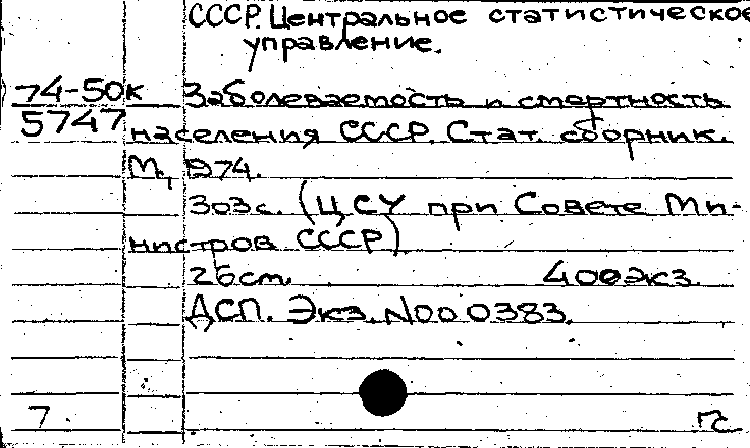 СССР. Центральное статистическое
управление.
74-50к Заболеваемость и смертность
5747 населения СССР. Стат. сборник.
М., 1974.
303с. (ЦСУ при Совете Ми-
нистров СССР)
26см. 400экз.
ДСП. Экз. №000383.
7.